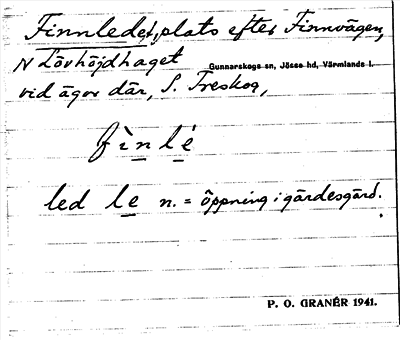 Finnledet, plats efter Finnvägen,
N Lövhöjdhaget Gunnarskogs sn, Jösse hd, Värmlands l.
vid ägor där, S. Treskog,
fìnlé
led le n. = öppning i gärdesgård.
P. O. GRANÉR 1941.